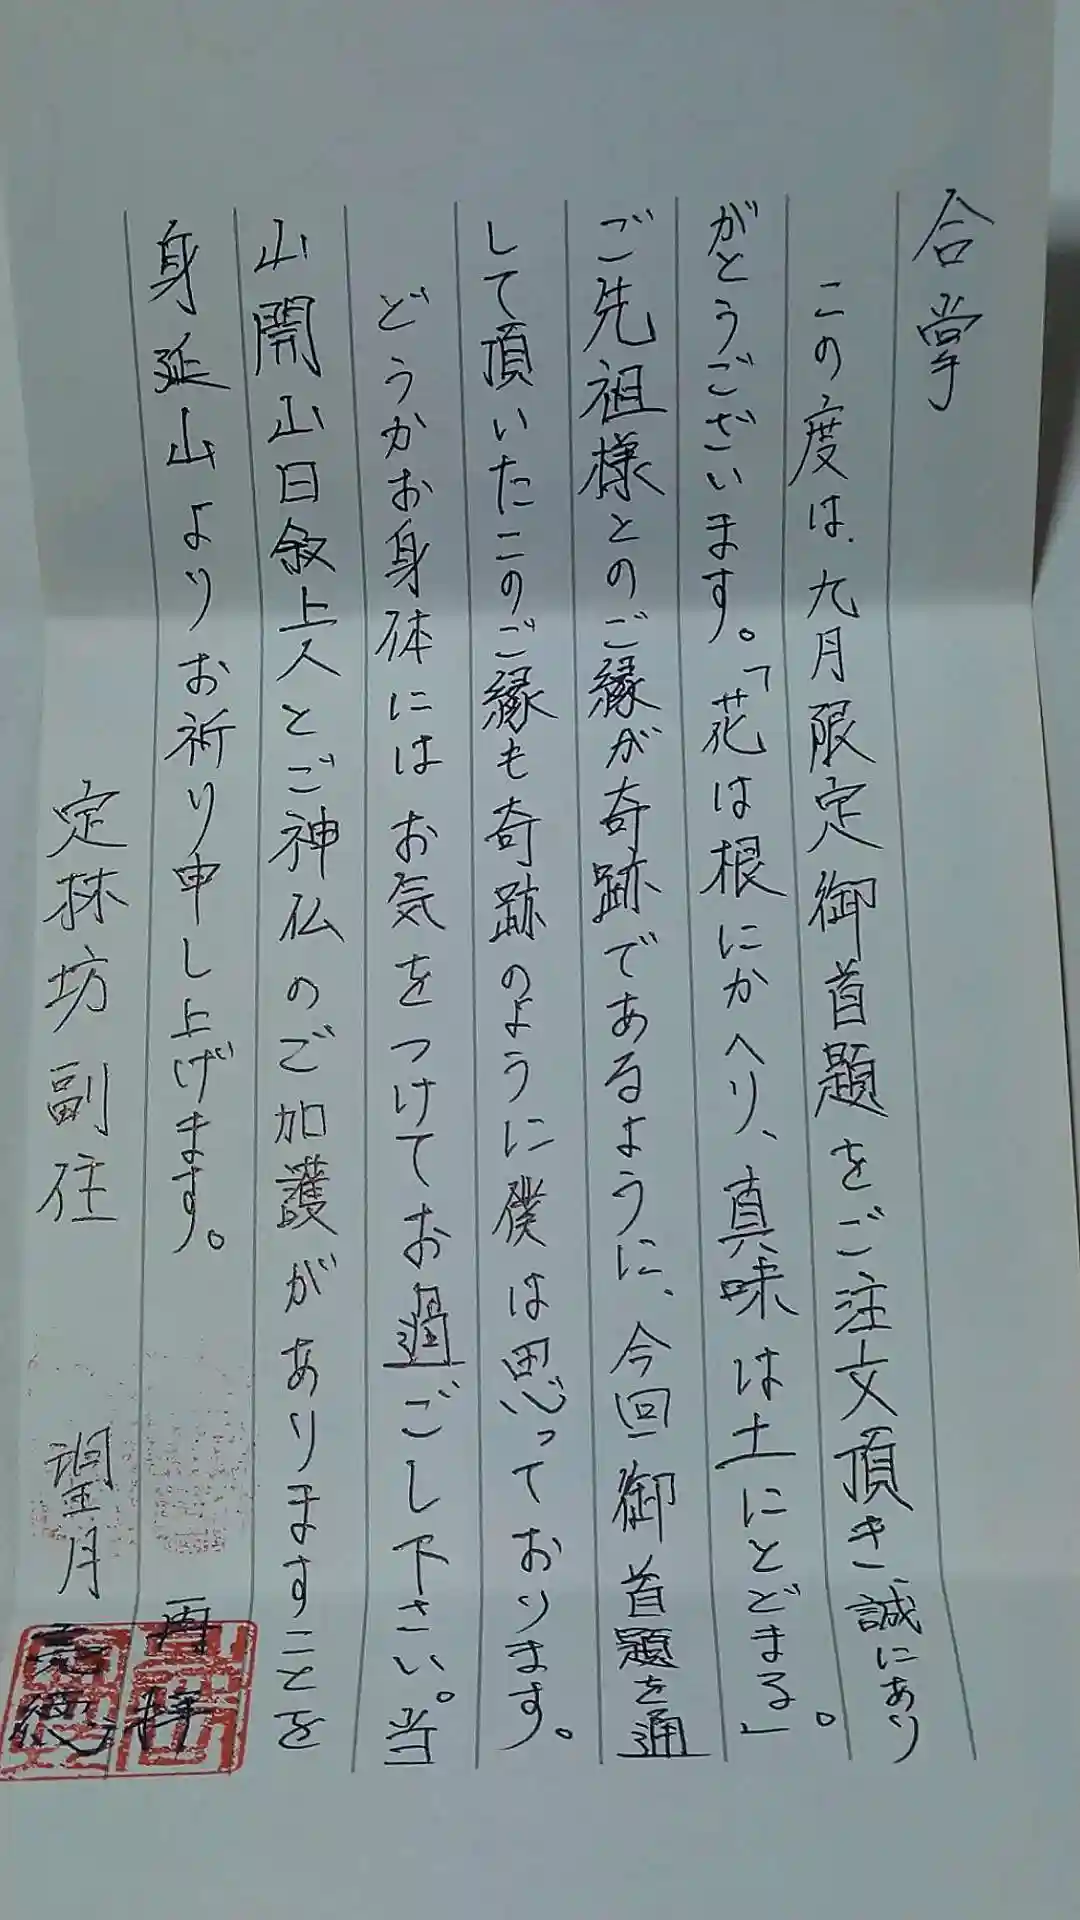 合掌
この度は、九月限定御首題をご注文頂き誠にあり
がとうございます。「花は根にかへり、真味は土にとどまる」。
ご先祖様とのご縁が奇跡であるように、今回御首題を通
して頂いたこのご縁も奇跡のように僕は思っております。
どうかお身体にはお気をつけてお過ごし下さい。当
山開山日叙上人とご神仏のご加護がありますことを
身延山よりお祈り申し上げます。 再拝
定林坊副住 望月